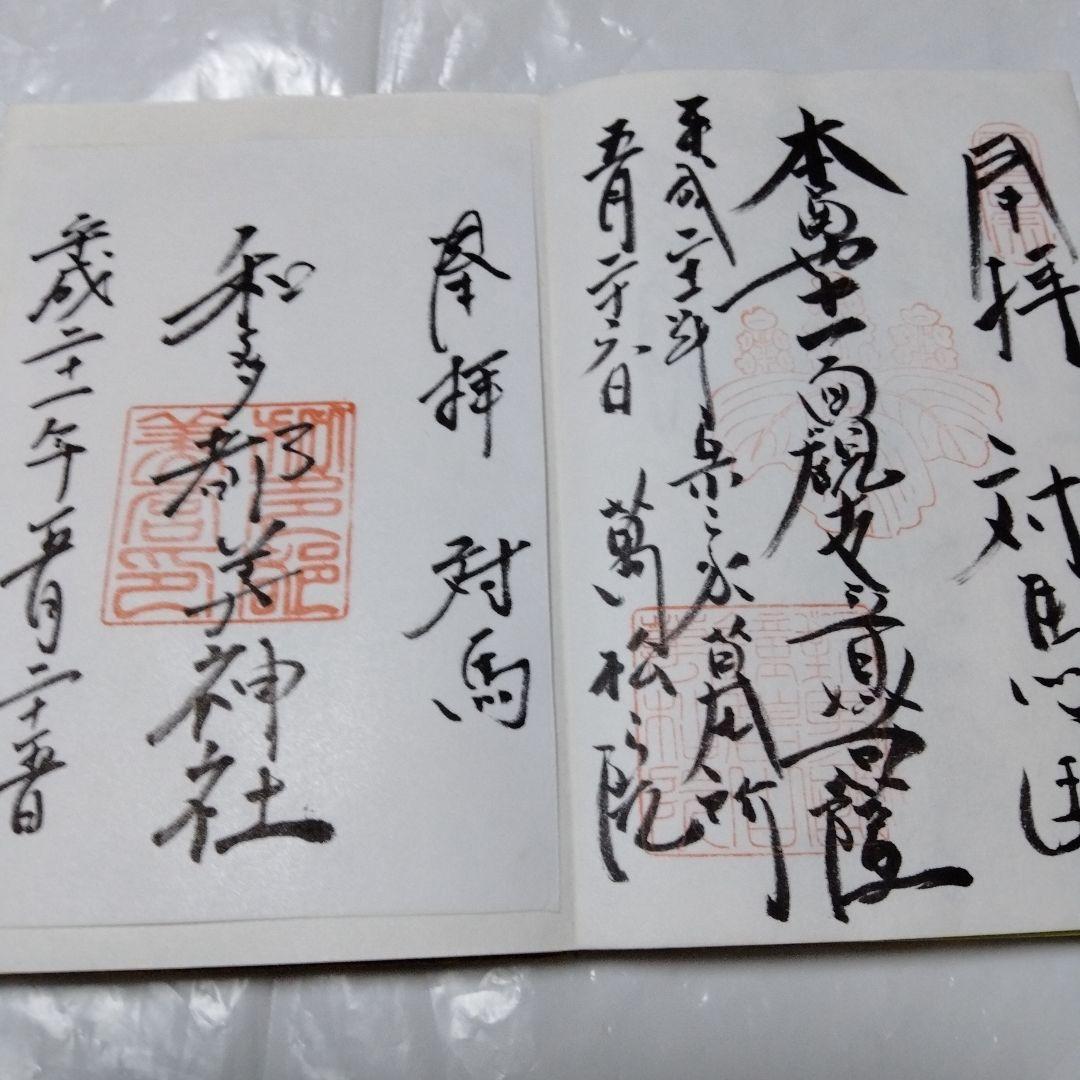 奉拝 対馬国
本尊十一面観世音菩薩
平成二十一年 宗家菩提所
五月二十六日 萬松院
奉拝 対馬
和多都美神社
平成二十一年五月二十五日